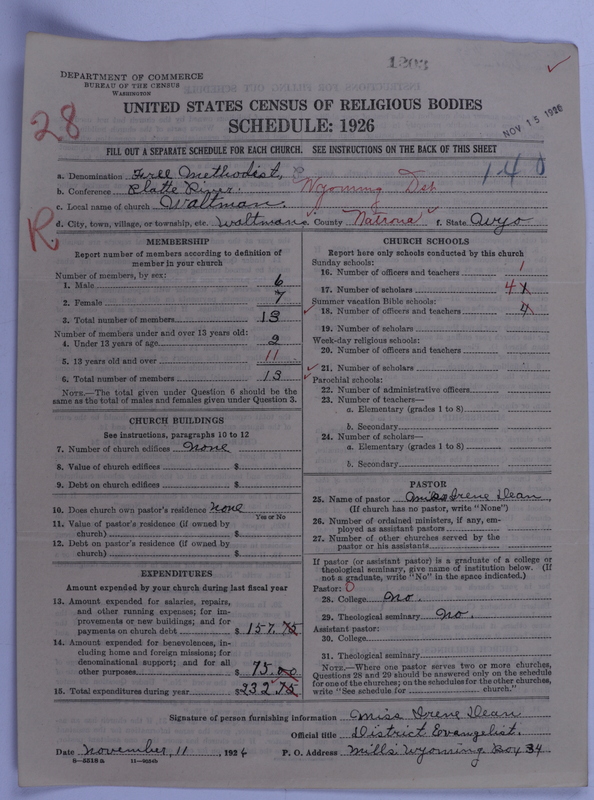 1203
DEPARTMENT OF COMMERCE
BUREAU OF THE CENSUS
WASHINGTON
UNITED STATES CENSUS OF RELIGIOUS BODIES
SCHEDULE: 1926
NOV 15 1926
28
FILL OUT A SEPARATE SCHEDULE FOR EACH CHURCH. SEE INSTRUCTIONS ON THE BACK OF THIS SHEET
a. Denomination Free Methodist, 1-40
b. Conference Platte River. Wyoming Dist
c. Local name of church Waltman.
d. City, town, village, or township, etc. Waltman e. County Natrona f. State Wyo
R
MEMBERSHIP
Report number of members according to definition of
member in your church
Number of members, by sex:
1. Male 6
2. Female 7
3. Total number of members 13
Number of members under and over 13 years old:
4. Under 13 years of age 2
5. 13 years old and over 11
6. Total number of members 13
NOTE.—The total given under Question 6 should be the
same as the total of males and females given under Question 3.
CHURCH BUILDINGS
See instructions, paragraphs 10 to 12
7. Number of church edifices none
8. Value of church edifices $
9. Debt on church edifices $
10. Does church own pastor's residence none
Yes or No
11. Value of pastor's residence (if owned by
church) $
12. Debt on pastor's residence (if owned by
church) $
EXPENDITURES
Amount expended by your church during last fiscal year
13. Amount expended for salaries, repairs,
and other running expenses; for im-
provements or new buildings; and for
payments on church debt $ 157.75
14. Amount expended for benevolences, in-
cluding home and foreign missions; for
denominational support; and for all
other purposes $ 75.00
15. Total expenditures during year $ 232.75
CHURCH SCHOOLS
Report here only schools conducted by this church
Sunday schools:
16. Number of officers and teachers 1
17. Number of scholars 4
Summer vacation Bible schools:
18. Number of officers and teachers 4
19. Number of scholars
Week-day religious schools:
20. Number of officers and teachers
21. Number of scholars
Parochial schools:
22. Number of administrative officers
23. Number of teachers—
a. Elementary (grades 1 to 8)
b. Secondary
24. Number of scholars—
a. Elementary (grades 1 to 8)
b. Secondary
PASTOR
25. Name of pastor Miss Irene Dean
(If church has no pastor, write "None")
26. Number of ordained ministers, if any, em-
ployed as assistant pastors
27. Number of other churches served by the
pastor or his assistants
If pastor (or assistant pastor) is a graduate of a college or
theological seminary, give name of institution below. (If
not a graduate, write "No" in the space indicated.)
Pastor: 0
28. College No.
29. Theological seminary No.
Assistant pastor:
30. College
31. Theological seminary
NOTE.—Where one pastor serves two or more churches,
Questions 28 and 29 should be answered only on the schedule
for one of the churches; on the schedules for the other churches,
write "See schedule for church."
Signature of person furnishing information Miss Irene Dean
Official title District Evangelist.
Date November, 11, 1926 P. O. Address Mills Wyoming Box 34
8—5518a 11—9154b